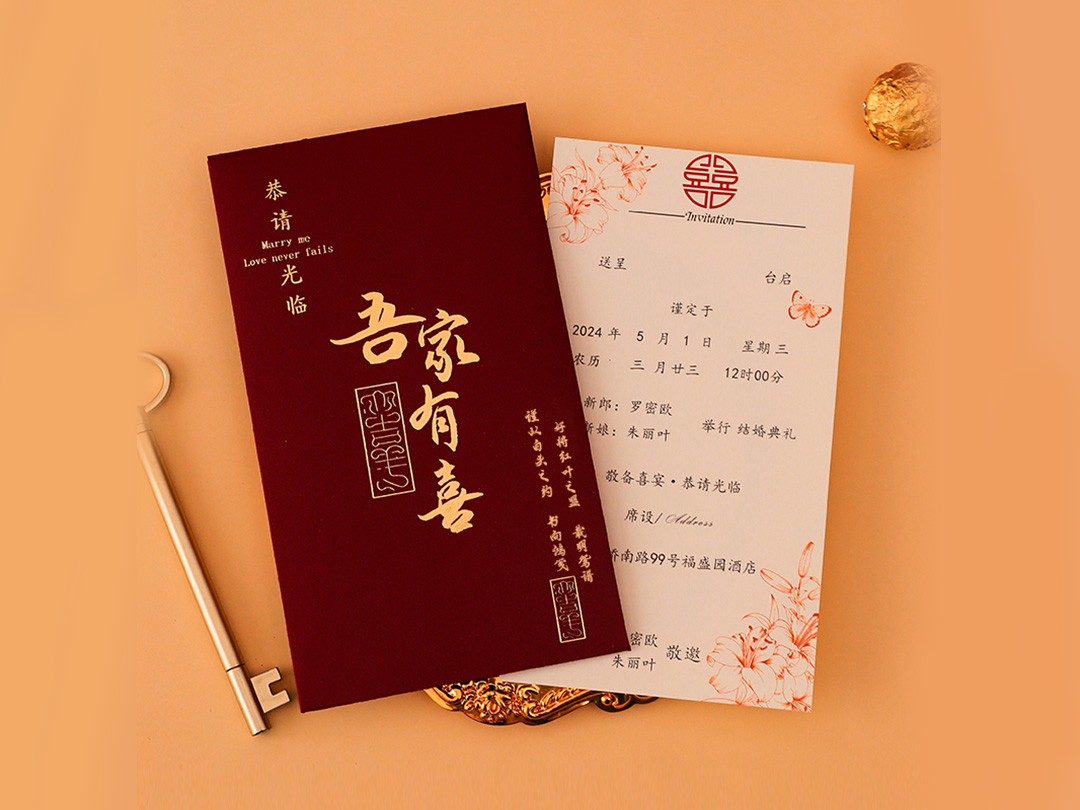 恭请光临
Marry me
Love never fails
吾家有喜
谨以白头之约 书向鸿笺
好将红叶之盟 载明鸳谱
囍
Invitation
送呈 台启
谨定于
2024 年 5 月 1 日 星期三
农历 三 月廿三 12时00分
新郎: 罗密欧
新娘: 朱丽叶
举行 结婚典礼
敬备喜宴·恭请光临
席设/Address
南路99号福盛园酒店
密欧
朱丽叶
敬邀